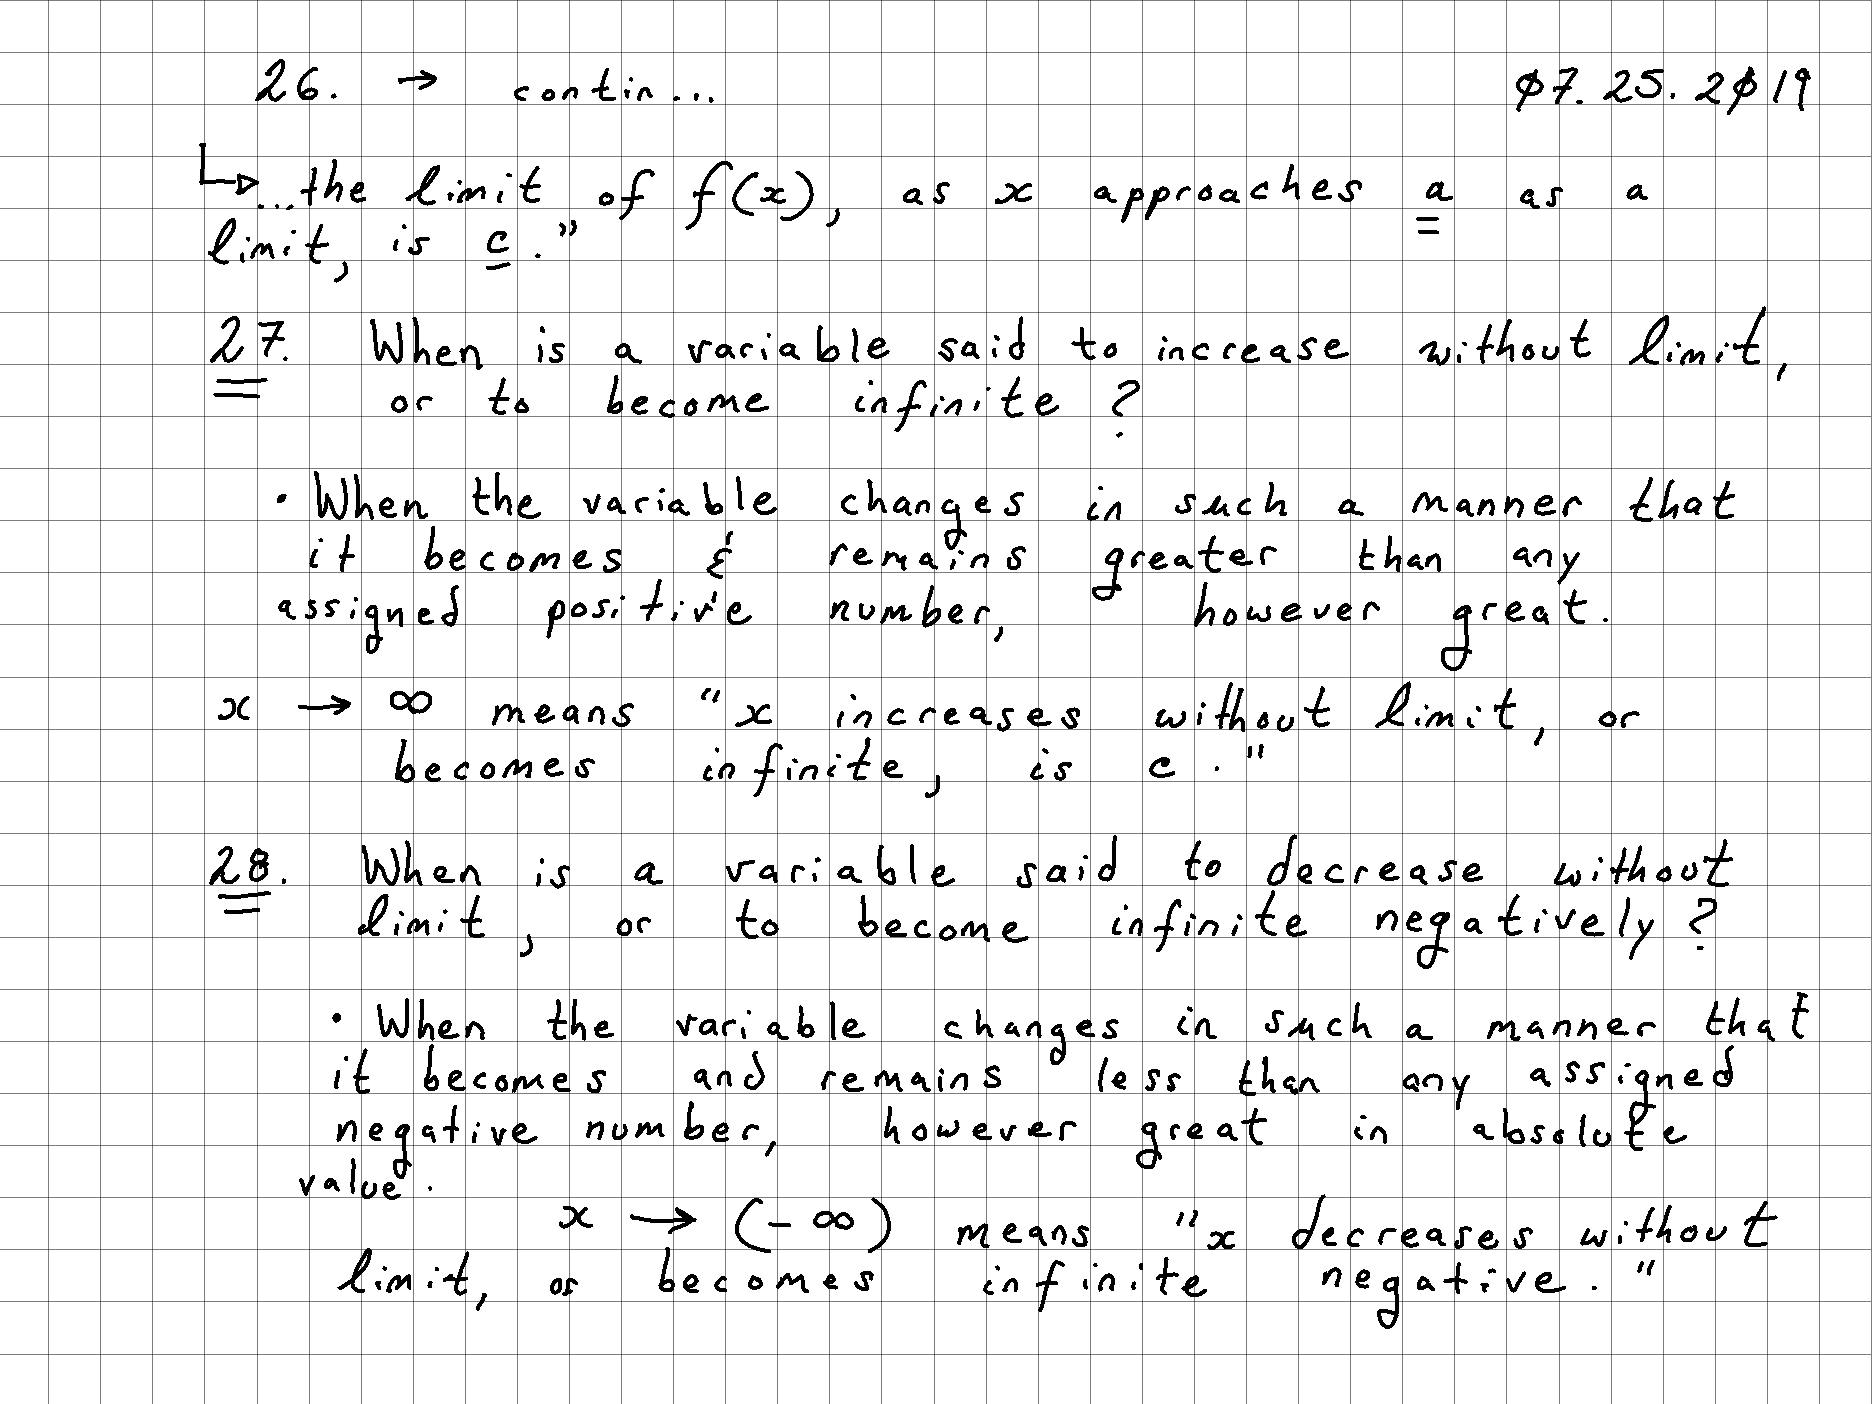 26. → contin... 07.25.2019
↳...the limit of f(x), as x approaches a as a
limit, is c."
27. When is a variable said to increase without limit,
or to become infinite?
• When the variable changes in such a manner that
it becomes & remains greater than any
assigned positive number, however great.
x → ∞ means "x increases without limit, or
becomes infinite, is c."
28. When is a variable said to decrease without
limit, or to become infinite negatively?
• When the variable changes in such a manner that
it becomes and remains less than any assigned
negative number, however great in absolute
value.
x → (-∞) means "x decreases without
limit, or becomes infinite negative."